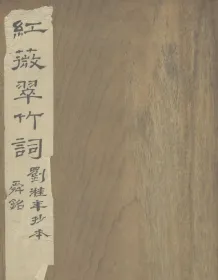 紅薇翠竹詞
劉淮年抄本
舜銘